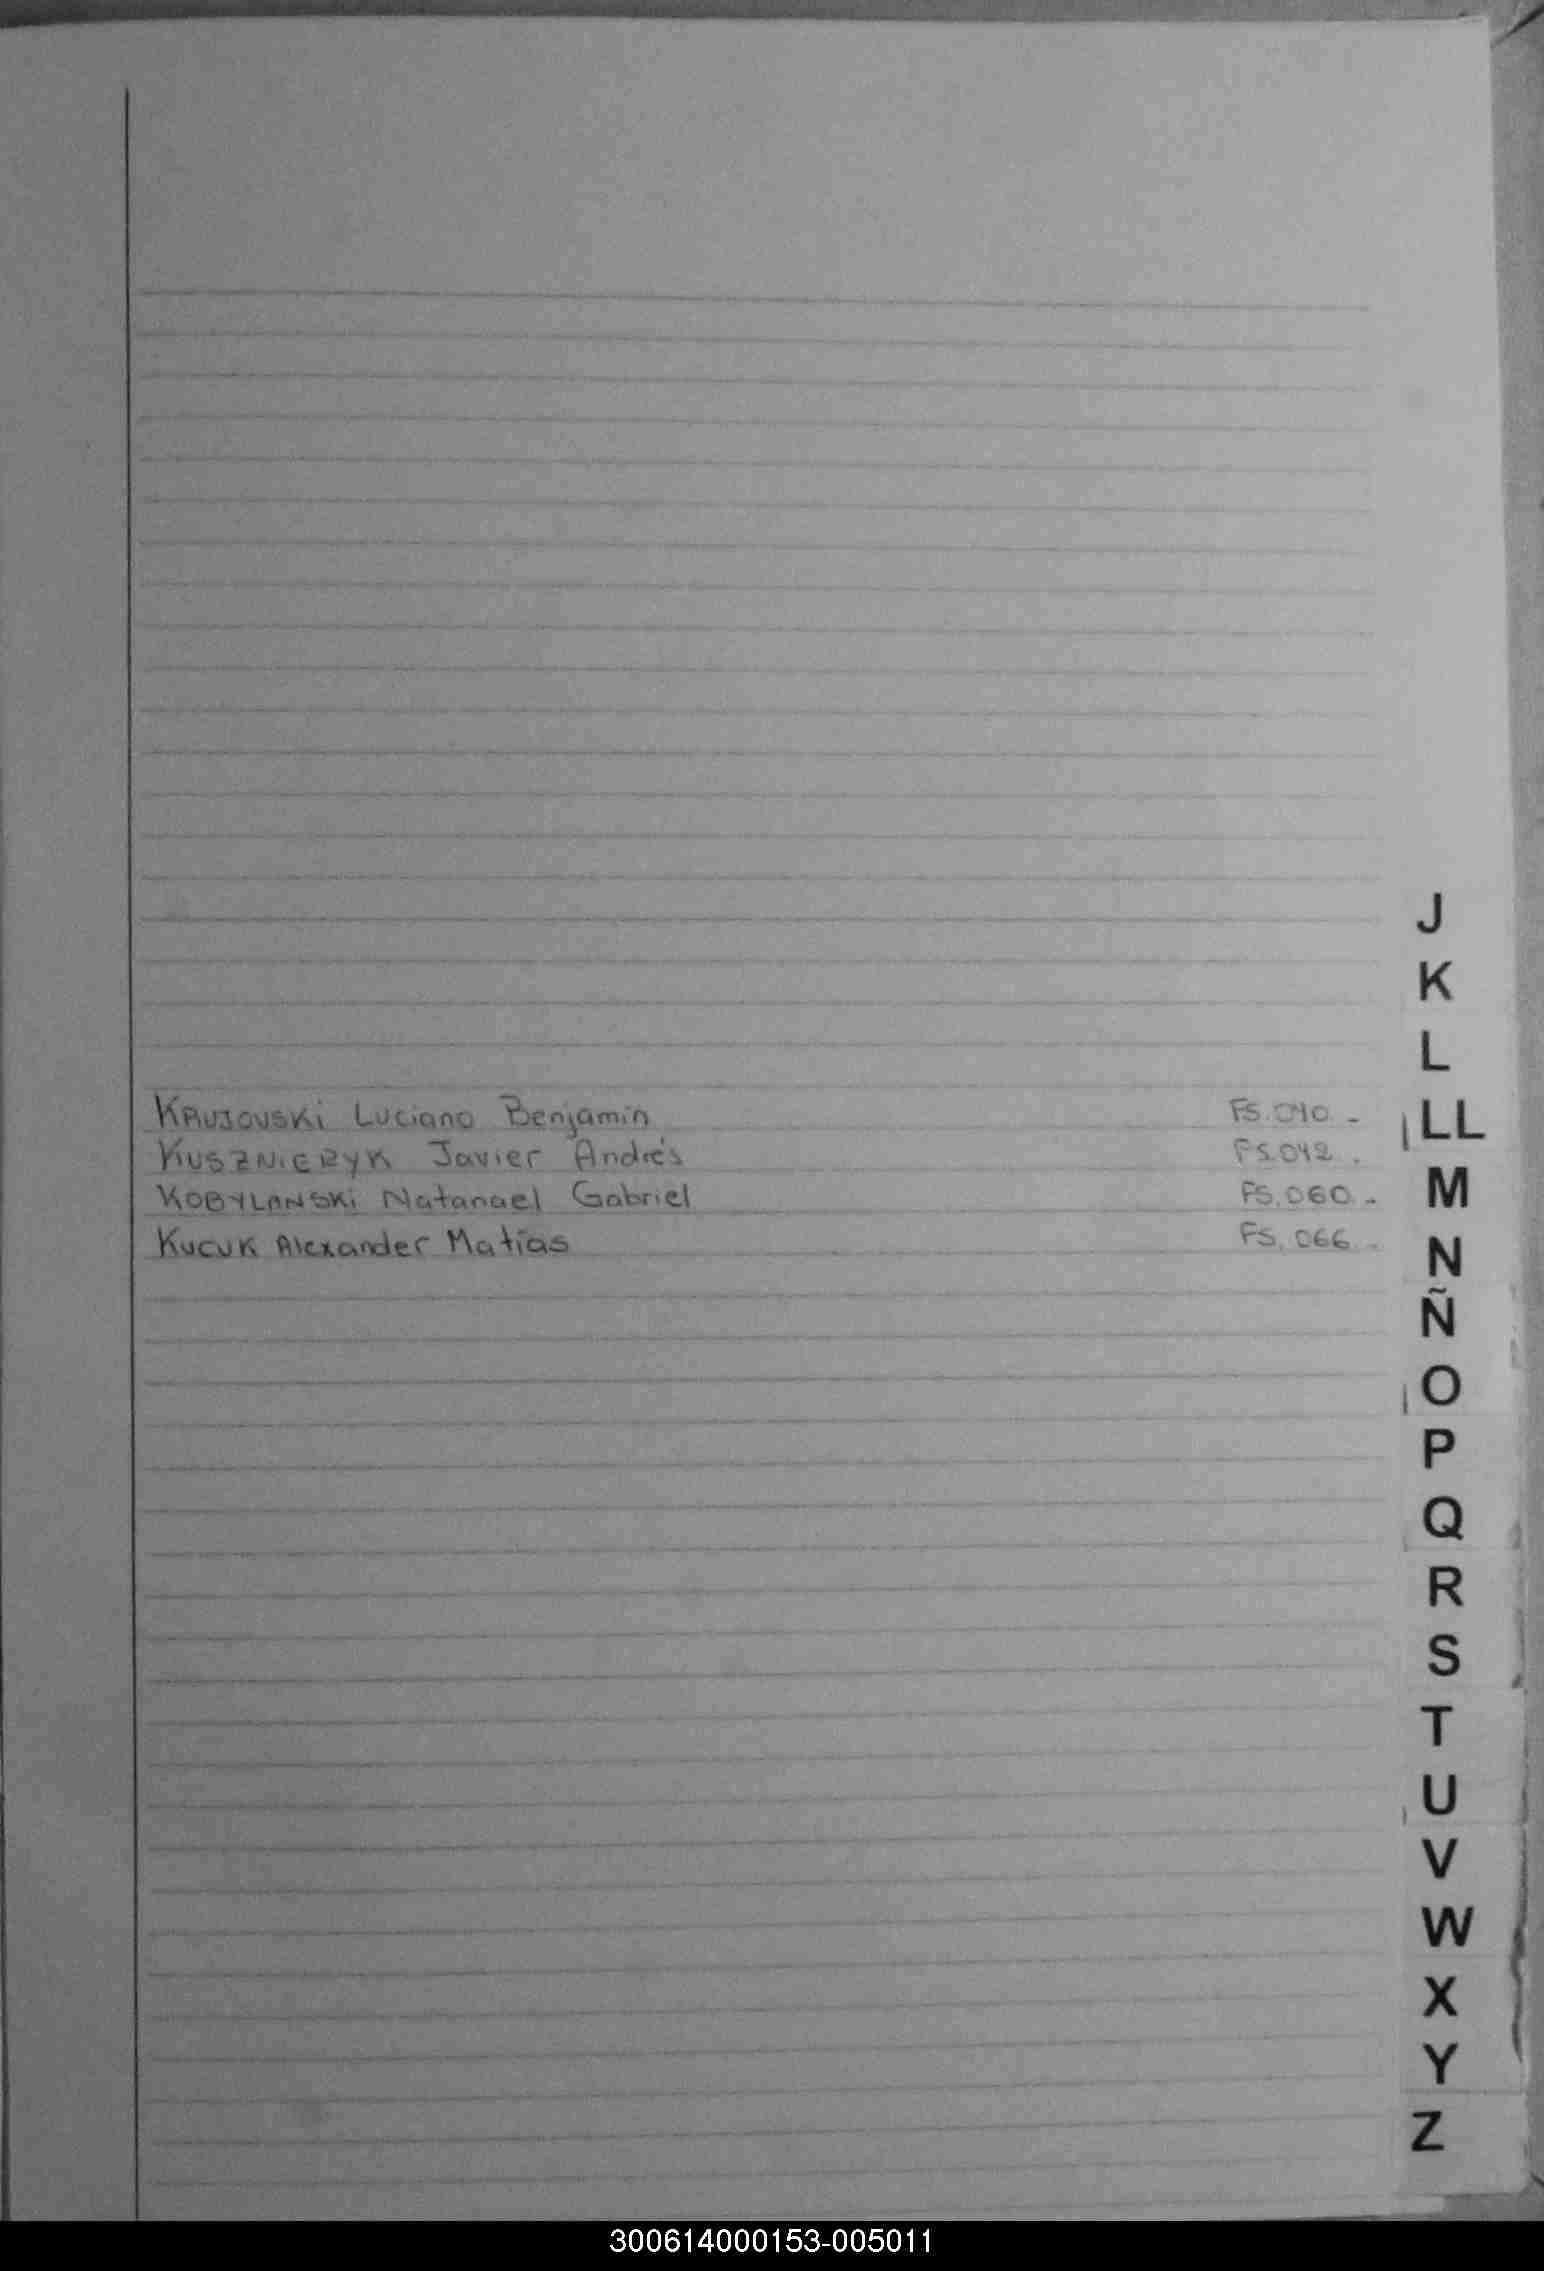 J
K
L
KRUJOVSKi Luciano Benjamin FS.040.-
LL
KUSZNIERYK Javier Andrés FS.042.
M
KOBYLANSKi Natanael Gabriel FS.060.-
KUCUK Alexander Matías FS.066.-
N
Ñ
O
P
Q
R
S
T
U
V
W
X
Y
Z
300614000153-005011